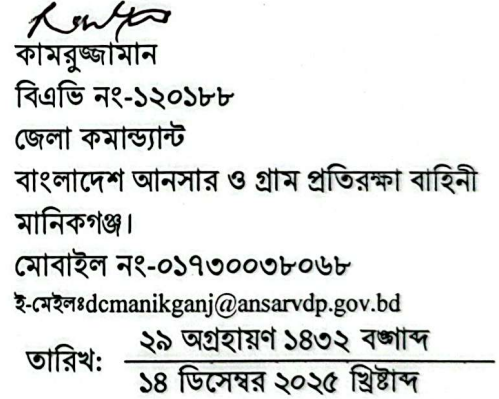 কামরুজ্জামান
বিএভি নং-১২০১৮৮
জেলা কমান্ড্যান্ট
বাংলাদেশ আনসার ও গ্রাম প্রতিরক্ষা বাহিনী
মানিকগঞ্জ।
মোবাইল নং-০১৭৩০০৩৮০৬৮
ই-মেইলঃdcmanikganj@ansarvdp.gov.bd
তারিখ:
২৯ অগ্রহায়ণ ১৪৩২ বঙ্গাব্দ
১৪ ডিসেম্বর ২০২৫ খ্রিষ্টাব্দ